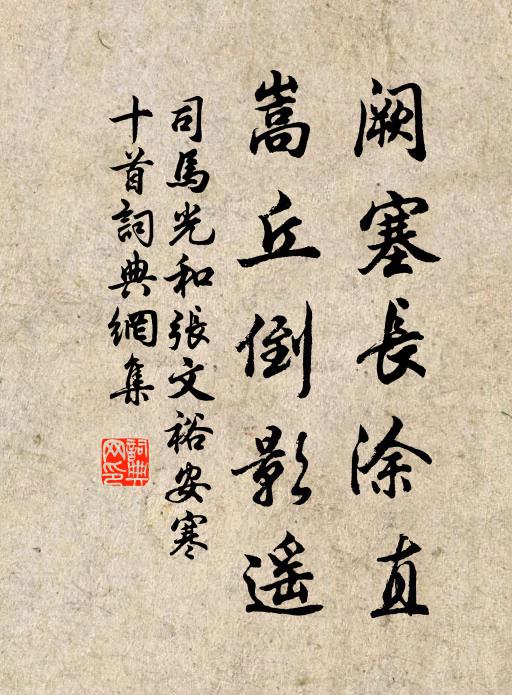 阙塞長涂直
嵩丘倒影遥
司馬光和張文裕安寒
十首詞典網集
詞典
网印